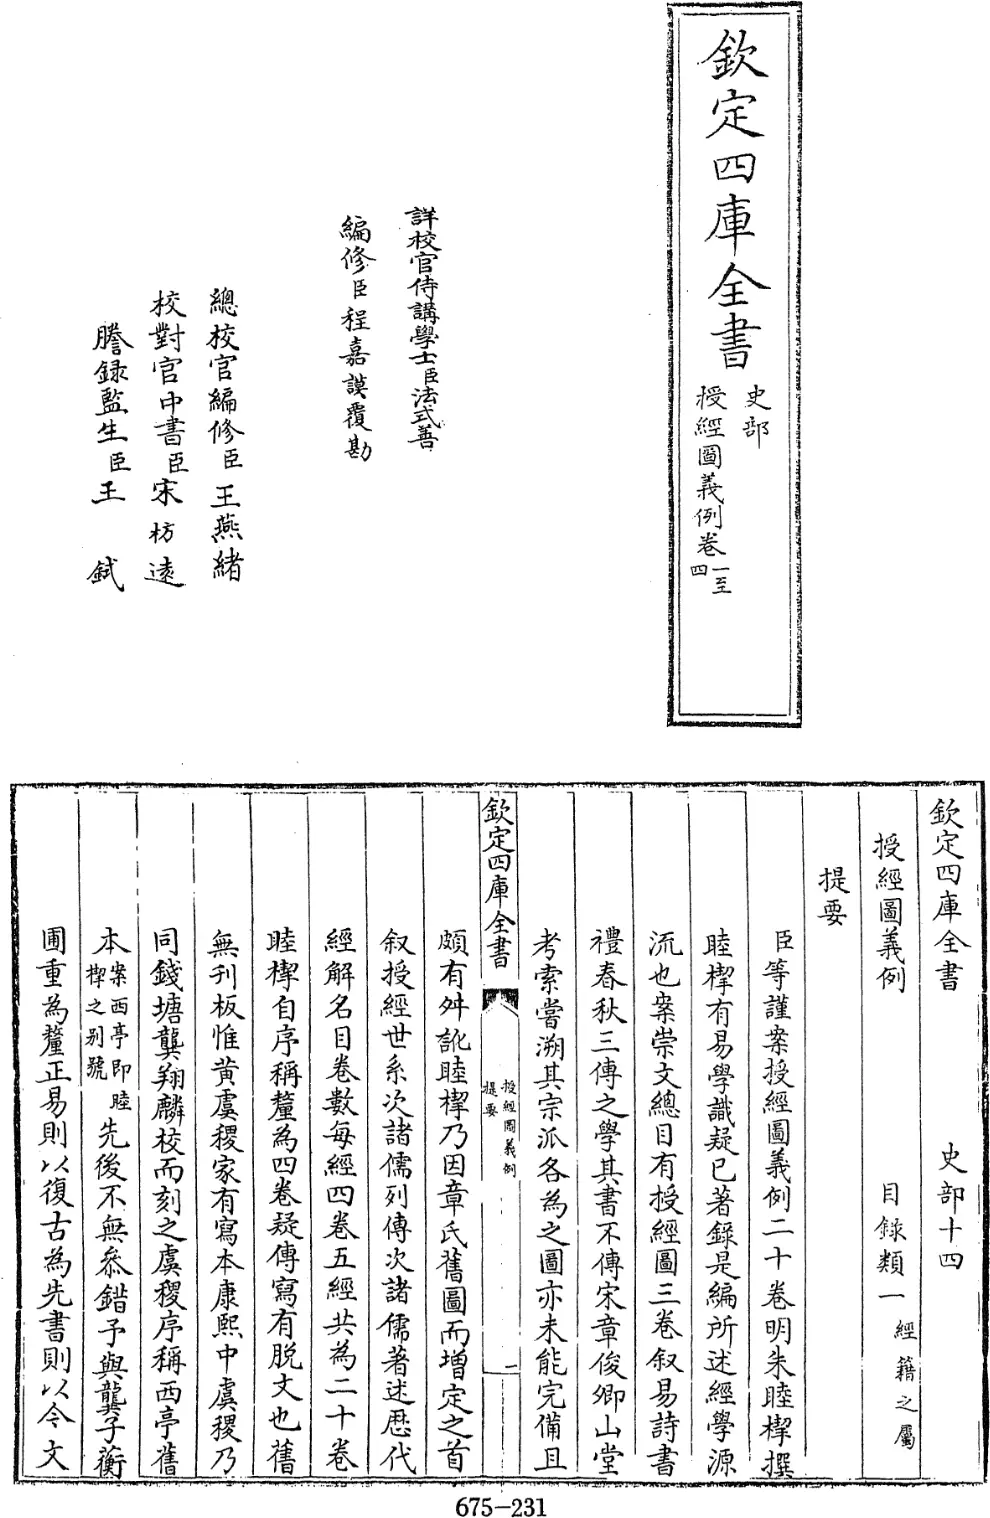 欽定四庫全書
史部
授經圖義例卷一至四
詳校官侍講學士臣法式善
編修臣程嘉謨覆勘
總校官編修臣王燕緒
校對官中書臣宋枋遠
謄録監生臣王鉽
欽定四庫全書 史部十四
授經圖義例 目録類一經籍之屬
提要
臣等謹案授經圖義例二十卷明朱睦㮮撰
睦㮮有易學識疑已著錄是編所述經學源
流也案崇文總目有授經圖三卷叙易詩書
禮春秋三傳之學其書不傳宋章俊卿山堂
考索嘗溯其宗派各為之圖亦未能完備且
欽定四庫全書
授經圖義例
提要
一
頗有舛訛睦㮮乃因章氏舊圖而增定之首
叙授經世系次諸儒列傳次諸儒著述歴代
經解名目卷數每經四卷五經共為二十卷
睦㮮自序稱釐為四卷疑傳寫有脱文也舊
無刊板惟黄虞稷家有寫本康熙中虞稷乃
同錢塘龔翔麟校而刻之虞稷序稱西亭舊
本案西亭即睦㮮之别號先後不無叅錯予與龔子蘅
圃重為釐正易則以復古為先書則以今文
675-231